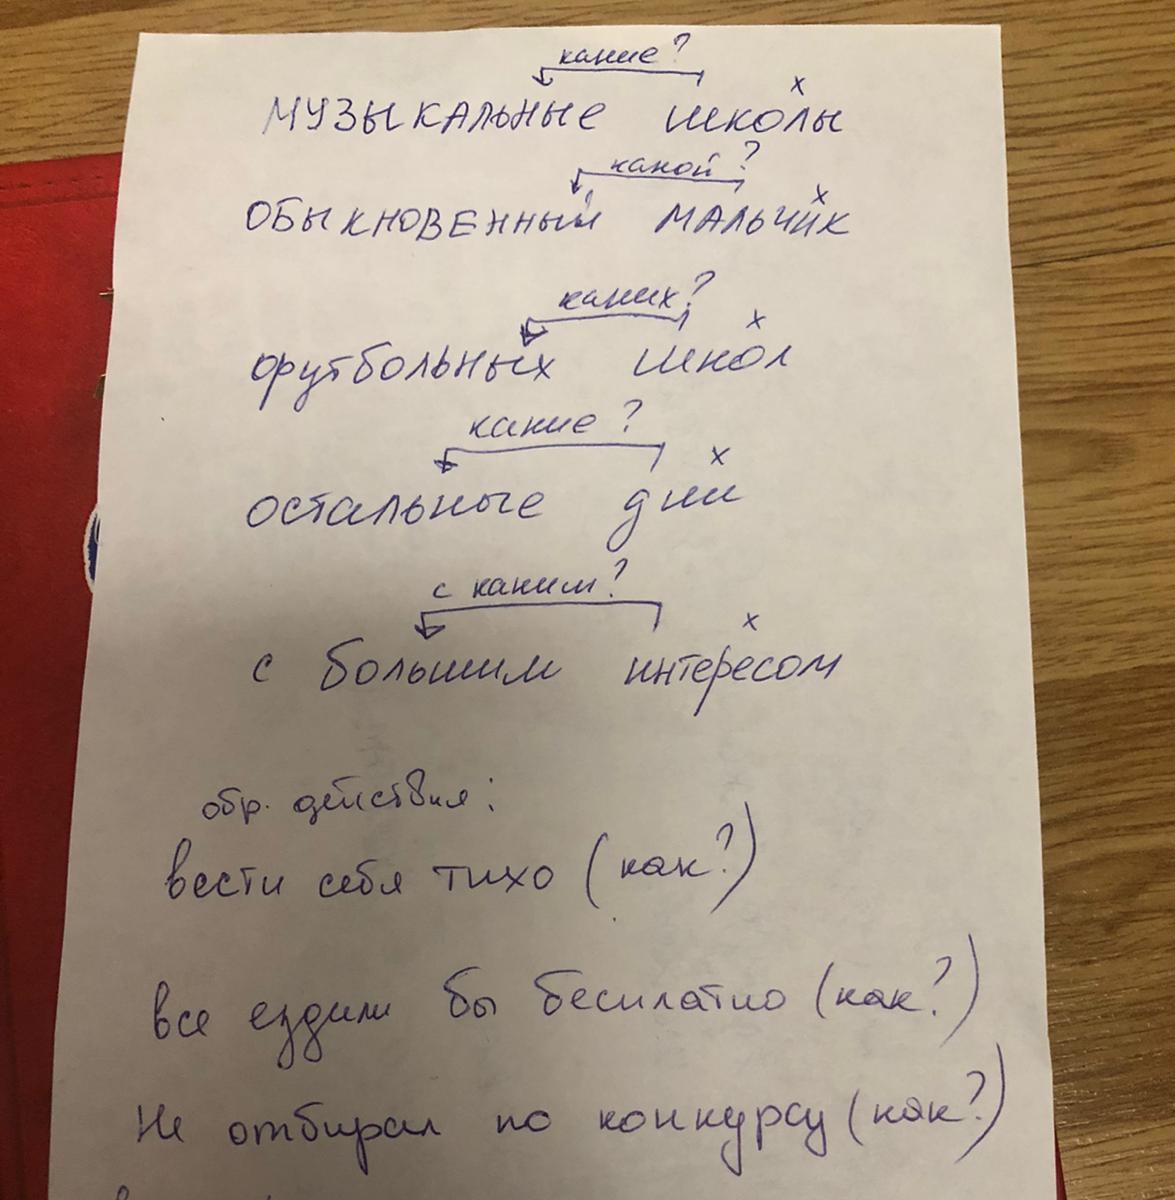 какие?
х
музыкальные школы
какой?
х
обыкновенный мальчик
каких?
х
футбольных школ
какие?
х
остальные дни
с каким?
х
с большим интересом
обр. действия:
вести себя тихо (как?)
все ездили бы бесплатно (как?)
Не отбирал по конкурсу (как?)